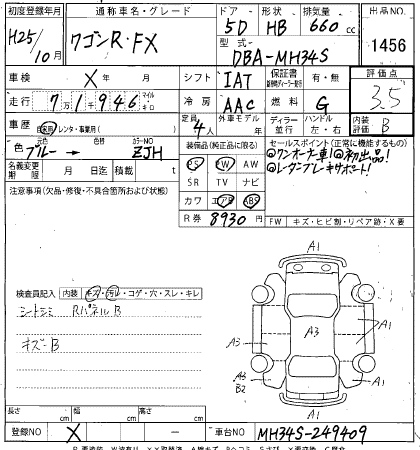 初度登録年月 通称車名・グレード ドア 形状 排気量 出品NO.
H25/10月 ワゴンR・FX 5D HB 660cc 1456
型式 DBA-MH34S
車検 X 年 月 シフト IAT 保証書 有・無 評価点
走行 7万1千946 マイル キロ 冷房 AAC 燃料 G 3.5
車歴 自家用 レンタ・事業用( ) 定員 4人 外車モデル ディーラー 並行 ハンドル 左・右 内装評価 B
色 元色 ブルー → 色替 カラーNO ZJH 装備品(純正品に限る) セールスポイント(正常に機能するもの)
名義変更期限 月 日迄 積載 t PS PW AW ◎ワンオーナー車!◎初出品!
注意事項(欠品・修復・不具合箇所および状態) SR TV ナビ ◎レーダーブレーキサポート!
カワ エアB ABS
R券 8930円 FW キズ・ヒビ割・リペア跡・X要
A1
検査員記入 内装 キズ・汚レ・コゲ・穴・スレ・キレ
シートシミ RパネルB
A3 A3 A1
オズーB
A3 B2 A1
長さ cm 幅 cm 高さ cm A1
登録NO X ー 車台NO MH34S-249409